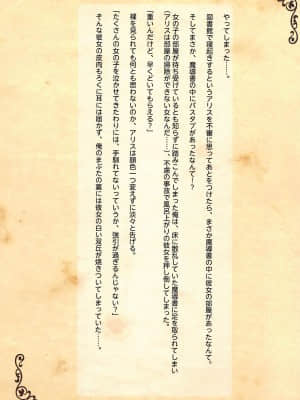 やってしまった……。
図書館で寝起きするというアリスを不審に思ってあとをつけたら、まさか魔導書の中に彼女の部屋があったなんて。
そしてまさか、魔導書の中にバスタブがあったなんて！？
女の子の部屋が待ち受けているとも知らずに踏みこんでしまった俺は、床に散乱していた魔導書に足を取られてしまい
（アリスは部屋の掃除ができない女なんだ……）、不慮の事故で風呂上がりの彼女を押し倒してしまった。
「重いんだけど、早くどいてもらえる？」
裸を見られても何とも思わないのか、アリスは顔色一つ変えずに淡々と告げる。
「たくさんの女の子を泣かせてきたわりには、手馴れてないっていうか、強引が過ぎるんじゃない？」
そんな彼女の皮肉もろくに耳には届かず、俺のまぶたの裏には彼女の白い双丘が焼きついてしまっていた……。